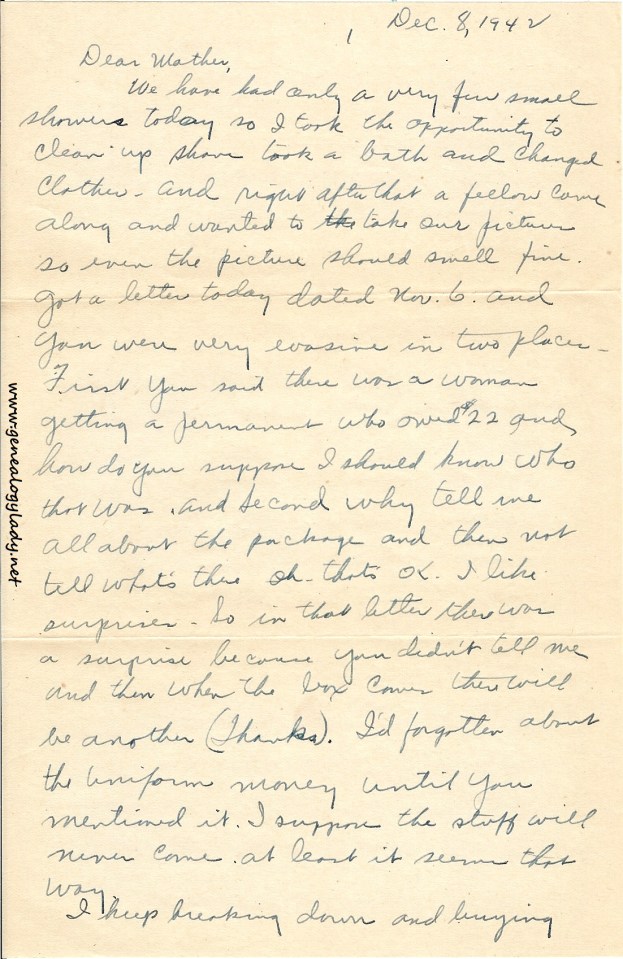 1 Dec. 8, 1942
Dear Mother,
We have had only a very few small
showers today so I took the opportunity to
clean up shave took a bath and changed
clothes - and right after that a fellow come
along and wanted to the take our picture
so even the picture should smell fine.
Got a letter today dated Nov. 6. and
you were very evasive in two places -
First you said there was a woman
getting a permanent who owed $22 and
how do you suppose I should know who
that was. and second why tell me
all about the package and then not
tell what's there oh - that's OK. I like
surprises - So in that letter there was
a surprise because you didn't tell me
and then when the box comes there will
be another (Thanks). I'd forgotten about
the uniform money until you
mentioned it. I suppose the stuff will
never come. at least it seems that
way.
I keep breaking down and buying
www.genealogylady.net